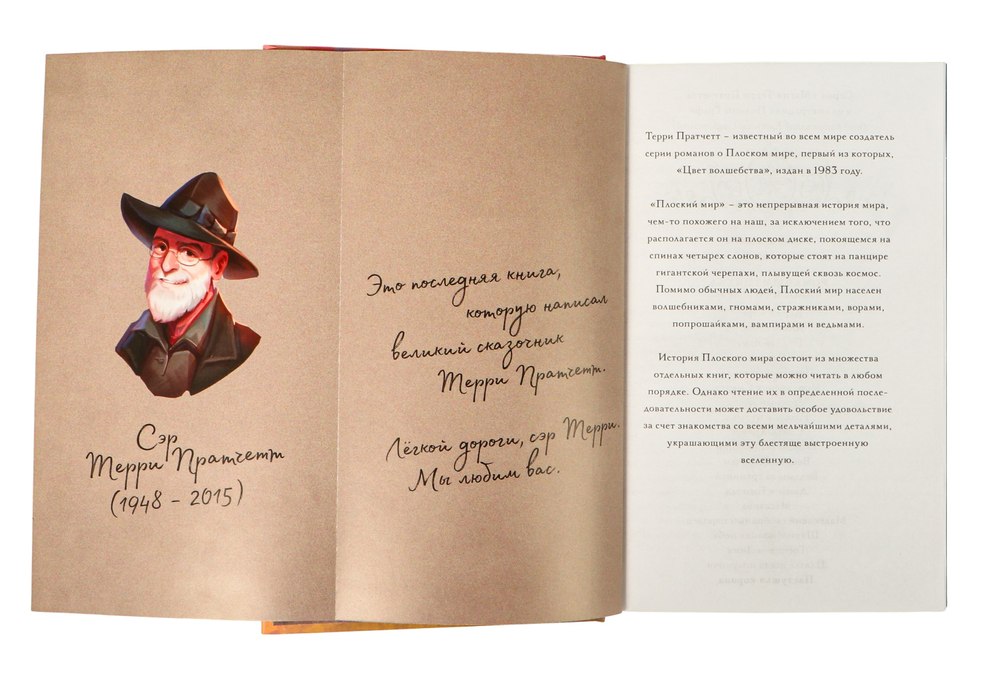 Сэр
Терри Пратчетт
(1948 – 2015)
Это последняя книга,
которую написал
великий сказочник
Терри Пратчетт.
Лёгкой дороги, сэр Терри.
Мы любим вас.
Терри Пратчетт – известный во всем мире создатель
серии романов о Плоском мире, первый из которых,
«Цвет волшебства», издан в 1983 году.
«Плоский мир» – это непрерывная история мира,
чем-то похожего на наш, за исключением того, что
располагается он на плоском диске, покоящемся на
спинах четырех слонов, которые стоят на панцире
гигантской черепахи, плывущей сквозь космос.
Помимо обычных людей, Плоский мир населен
волшебниками, гномами, стражниками, ворами,
попрошайками, вампирами и ведьмами.
История Плоского мира состоит из множества
отдельных книг, которые можно читать в любом
порядке. Однако чтение их в определенной после-
довательности может доставить особое удовольствие
за счет знакомства со всеми мельчайшими деталями,
украшающими эту блестяще выстроенную
вселенную.